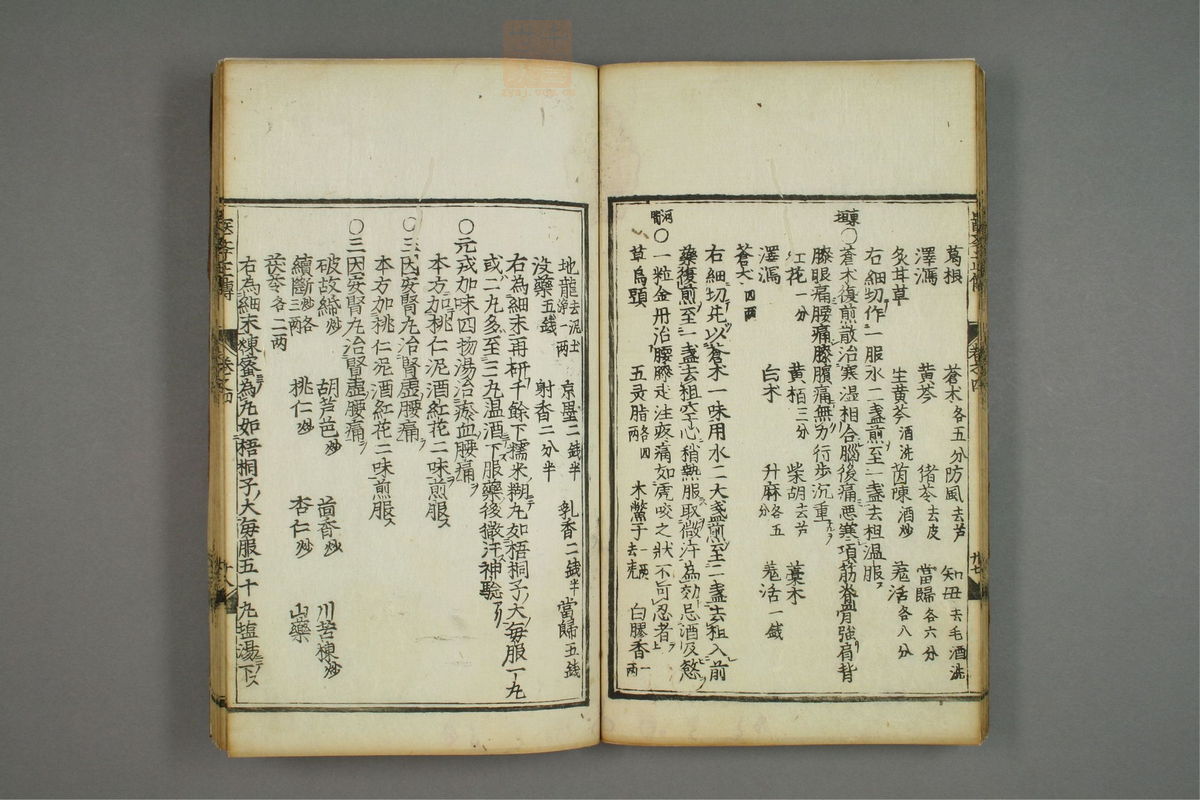 葛根 蒼朮各五分 防風去芦 知母去毛酒洗
澤瀉 黄芩 猪苓去皮 當歸各六分
炙甘草 生黄芩酒洗 茵陳酒炒 羗活各八分
右細切作一服水二盞煎至一盞去柤温服
東垣○蒼朮復煎散治寒湿相合腦後痛悪寒項筋脊骨強肩背
膝眼痛腰痛膝臏痛無力行歩沉重
紅花一分 黄栢三分 柴胡去芦 藁本
澤瀉 白朮 升麻各五分 羗活一戔
蒼朮四兩
右細切先以蒼朮一味用水二大盞煎至二盞去柤入前
藥復煎至一盞去柤空心稍熱服取微汗為効忌酒及慾
河間○一粒金丹治腰膝走注疼痛如虎咬之狀不可忍者
草烏頭 五灵脂各四兩 木鱉子去壳一兩 白膠香一兩
地龍去泥土淨一兩 京墨二戔半 乳香二戔半 當歸五戔
没藥五戔 射香二分半
右為細末再杵千餘下糯米糊丸如梧桐子大毎服一丸
或二丸多至三丸温酒下服藥後微汗神驗
○元戎加味四物湯治瘀血腰痛
本方加桃仁泥酒紅花二味煎服
○三因安腎丸治腎虚腰痛
本方加桃仁泥酒紅花二味煎服
○三因安腎丸治腎虚腰痛
破故紙炒 胡芦芭炒 茴香炒 川苦楝炒
續斷炒各三兩 桃仁炒 杏仁炒 山藥
茯苓各二兩
右為細末煉蜜為丸如梧桐子大毎服五十丸塩湯下